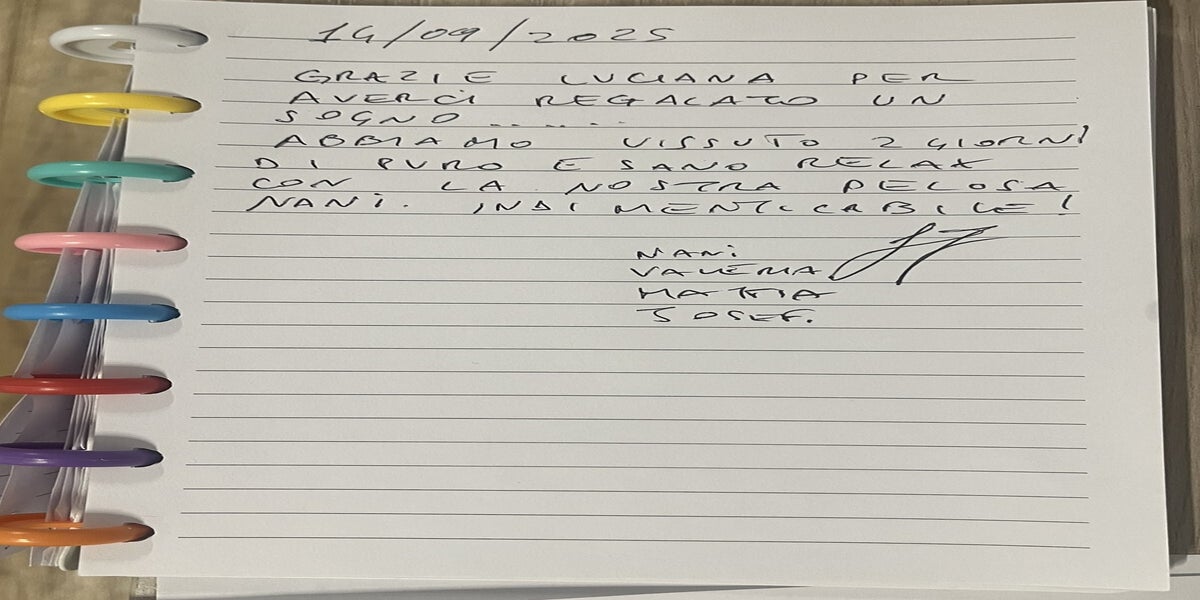 14/09/2025
GRAZIE LUCIANA PER
AVERCI REGALATO UN
SOGNO......
ABBIAMO VISSUTO 2 GIORNI
DI PURO E SANO RELAX
CON LA NOSTRA PELOSA
NANI. INDIMENTICABILE!
NANI
VALERIA
MATTIA
JOSEF.